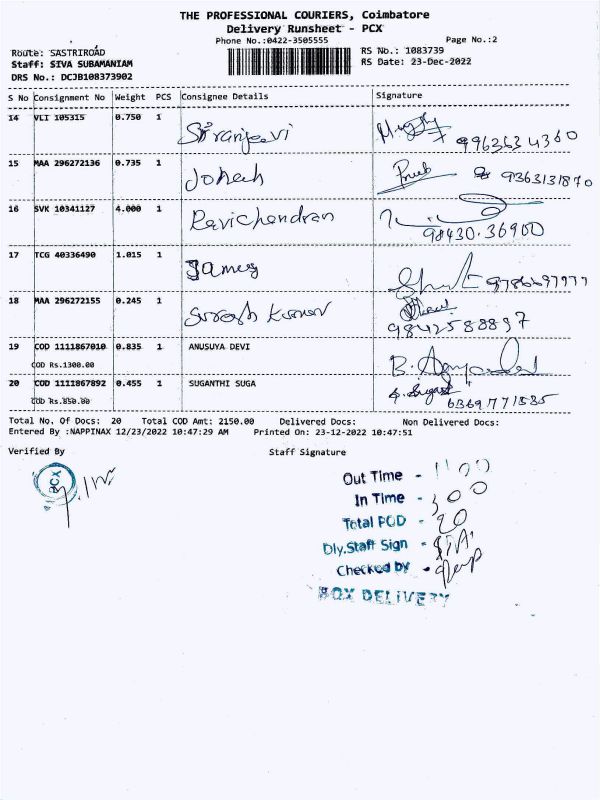 THE PROFESSIONAL COURIERS, Coimbatore
Delivery Runsheet - PCX
Phone No.:0422-3505555 Page No.:2
Route: SASTRIROAD RS No.: 1083739
Staff: SIVA SUBAMANIAM RS Date: 23-Dec-2022
DRS No.: DCJB108373902
S No Consignment No Weight PCS Consignee Details Signature
14 VLI 105315 0.750 1 Siranjeevi 9963634360
15 MAA 296272136 0.735 1 9363131870
16 SVK 10341127 4.000 1 Ravichandran 98430.36900
17 TCG 40336490 1.015 1 James
18 MAA 296272155 0.245 1 Suresh Kumar 9842588897
19 COD 1111867010 0.835 1 ANUSUYA DEVI
COD Rs.1300.00
20 COD 1111867892 0.455 1 SUGANTHI SUGA
COD Rs.850.00 6369771585
Total No. Of Docs: 20 Total COD Amt: 2150.00 Delivered Docs: Non Delivered Docs:
Entered By :NAPPINAX 12/23/2022 10:47:29 AM Printed On: 23-12-2022 10:47:51
Verified By Staff Signature
BCX
Out Time - 1100
In Time - 300
Total POD - 20
Dly.Staff Sign - SIVA
Checked by -
BOX DELIVERY